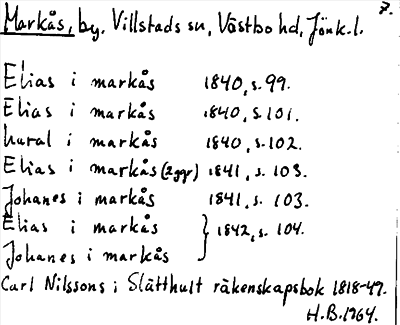 7.
Markås, by. Villstads sn, Västbo hd, Jönk.l.
Elias i markås 1840, s. 99.
Elias i markås 1840, s. 101.
hural i markås 1840, s. 102.
Elias i markås (2 ggr) 1841, s. 103.
Johanes i markås 1841, s. 103.
Elias i markås } 1842, s. 104.
Johanes i markås
Carl Nilssons i Slätthult räkenskapsbok 1818-49.
H.B. 1964.